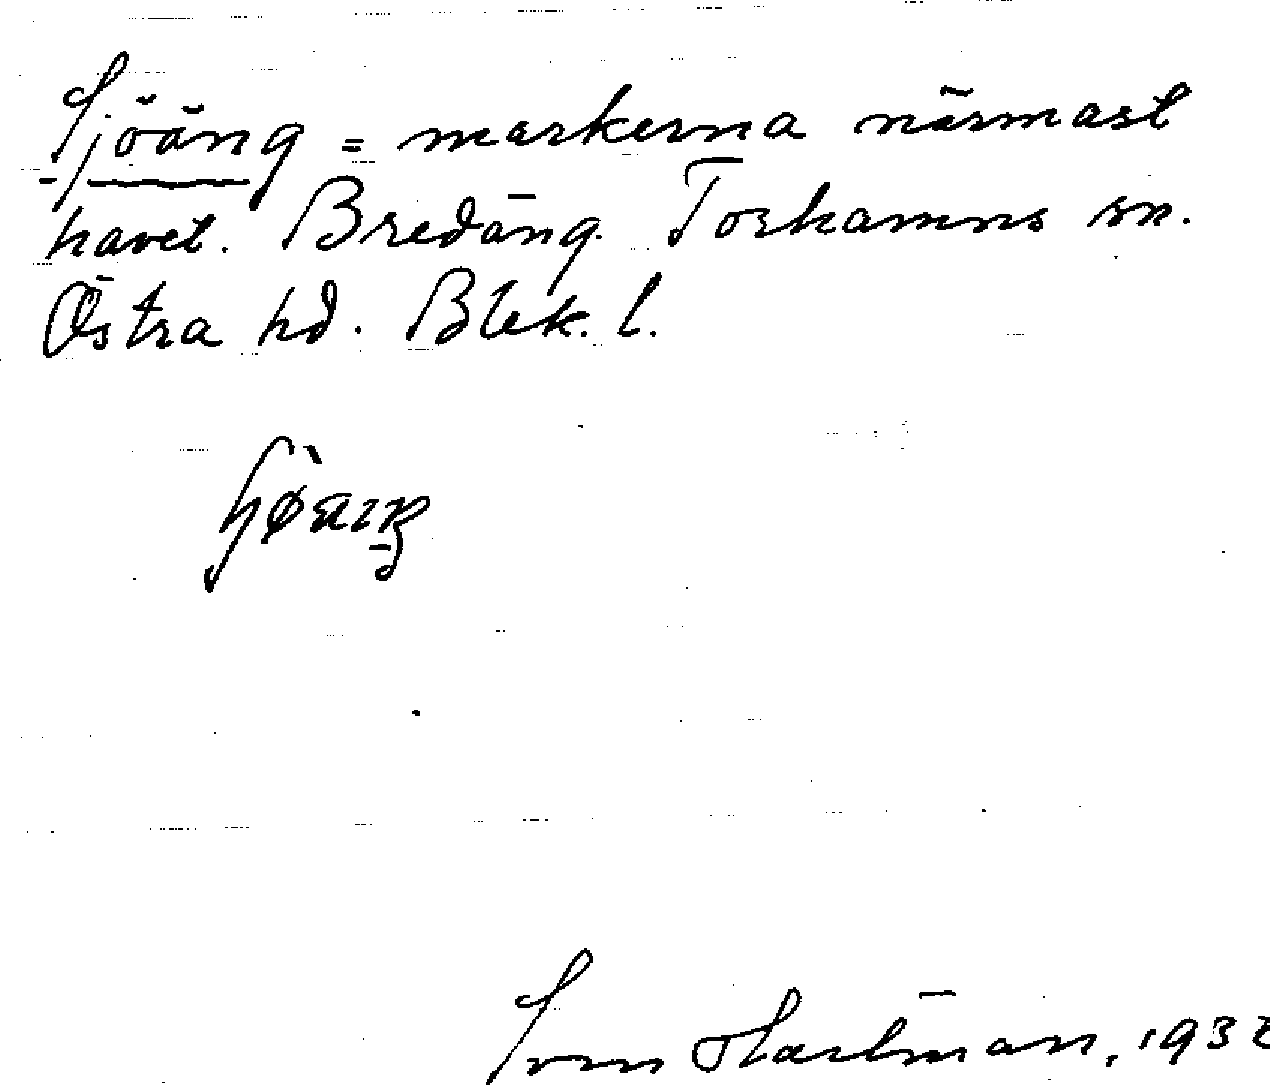 Sjöäng = markerna närmast
havet. Bredäng. Torhamns sn.
Östra hd. Blek. l.
Sven Hartman, 1932